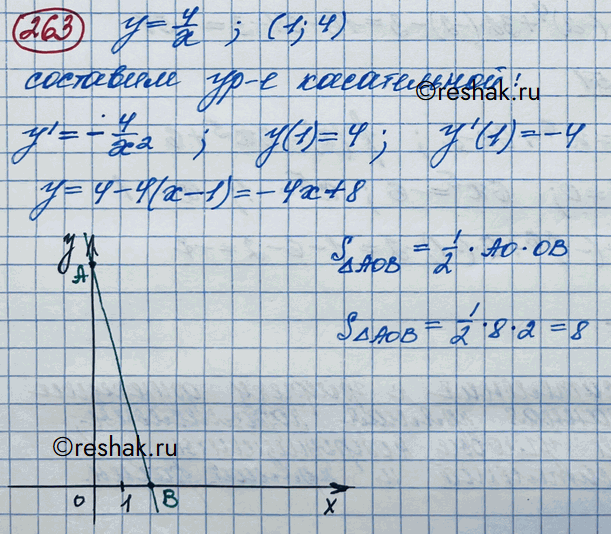 263 y = 4/x ; (1; 4)
составим ур-е касательной:
©reshak.ru
y' = -4/x² ; y(1) = 4 ; y'(1) = -4
y = 4 - 4(x - 1) = -4x + 8
y
A
S△AOB = 1/2 · AO · OB
S△AOB = 1/2 · 8 · 2 = 8
©reshak.ru
0 1 B x